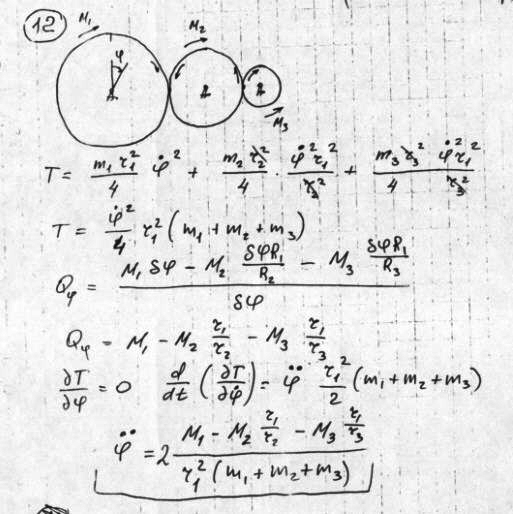 12
M₁ M₂
φ
M₃
T = m₁r₁²/4 φ̇² + m₂r₂²/4 · φ̇²r₁²/r₂² + m₃r₃²/4 φ̇²r₁²/r₃²
T = φ̇²/4 r₁² (m₁ + m₂ + m₃)
Q_φ = (M₁ δφ − M₂ δφR₁/R₂ − M₃ δφR₁/R₃)/δφ
Q_φ = M₁ − M₂ r₁/r₂ − M₃ r₁/r₃
∂T/∂φ = 0 d/dt (∂T/∂φ̇) = φ̈ r₁²/2 (m₁ + m₂ + m₃)
φ̈ = 2 (M₁ − M₂ r₁/r₂ − M₃ r₁/r₃)/(r₁² (m₁ + m₂ + m₃))